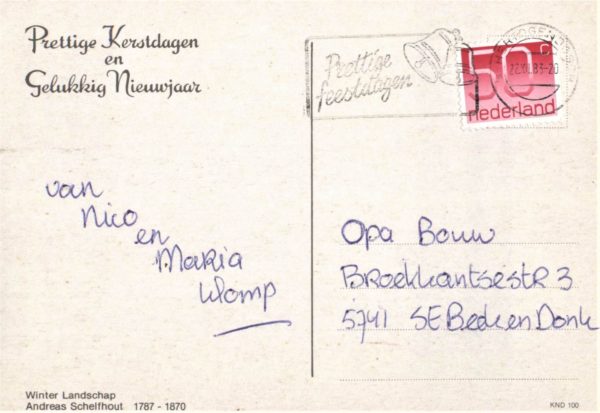 Prettige Kerstdagen
en
Gelukkig Nieuwjaar
Prettige
feestdagen
50c
nederland
22.XII.83-20
van
Nico
en
Maria
Klomp
Opa Bouw
Broekkantsestr 3
5741 SE Beek en Donk
Winter Landschap
Andreas Schelfhout 1787 - 1870
KND 100